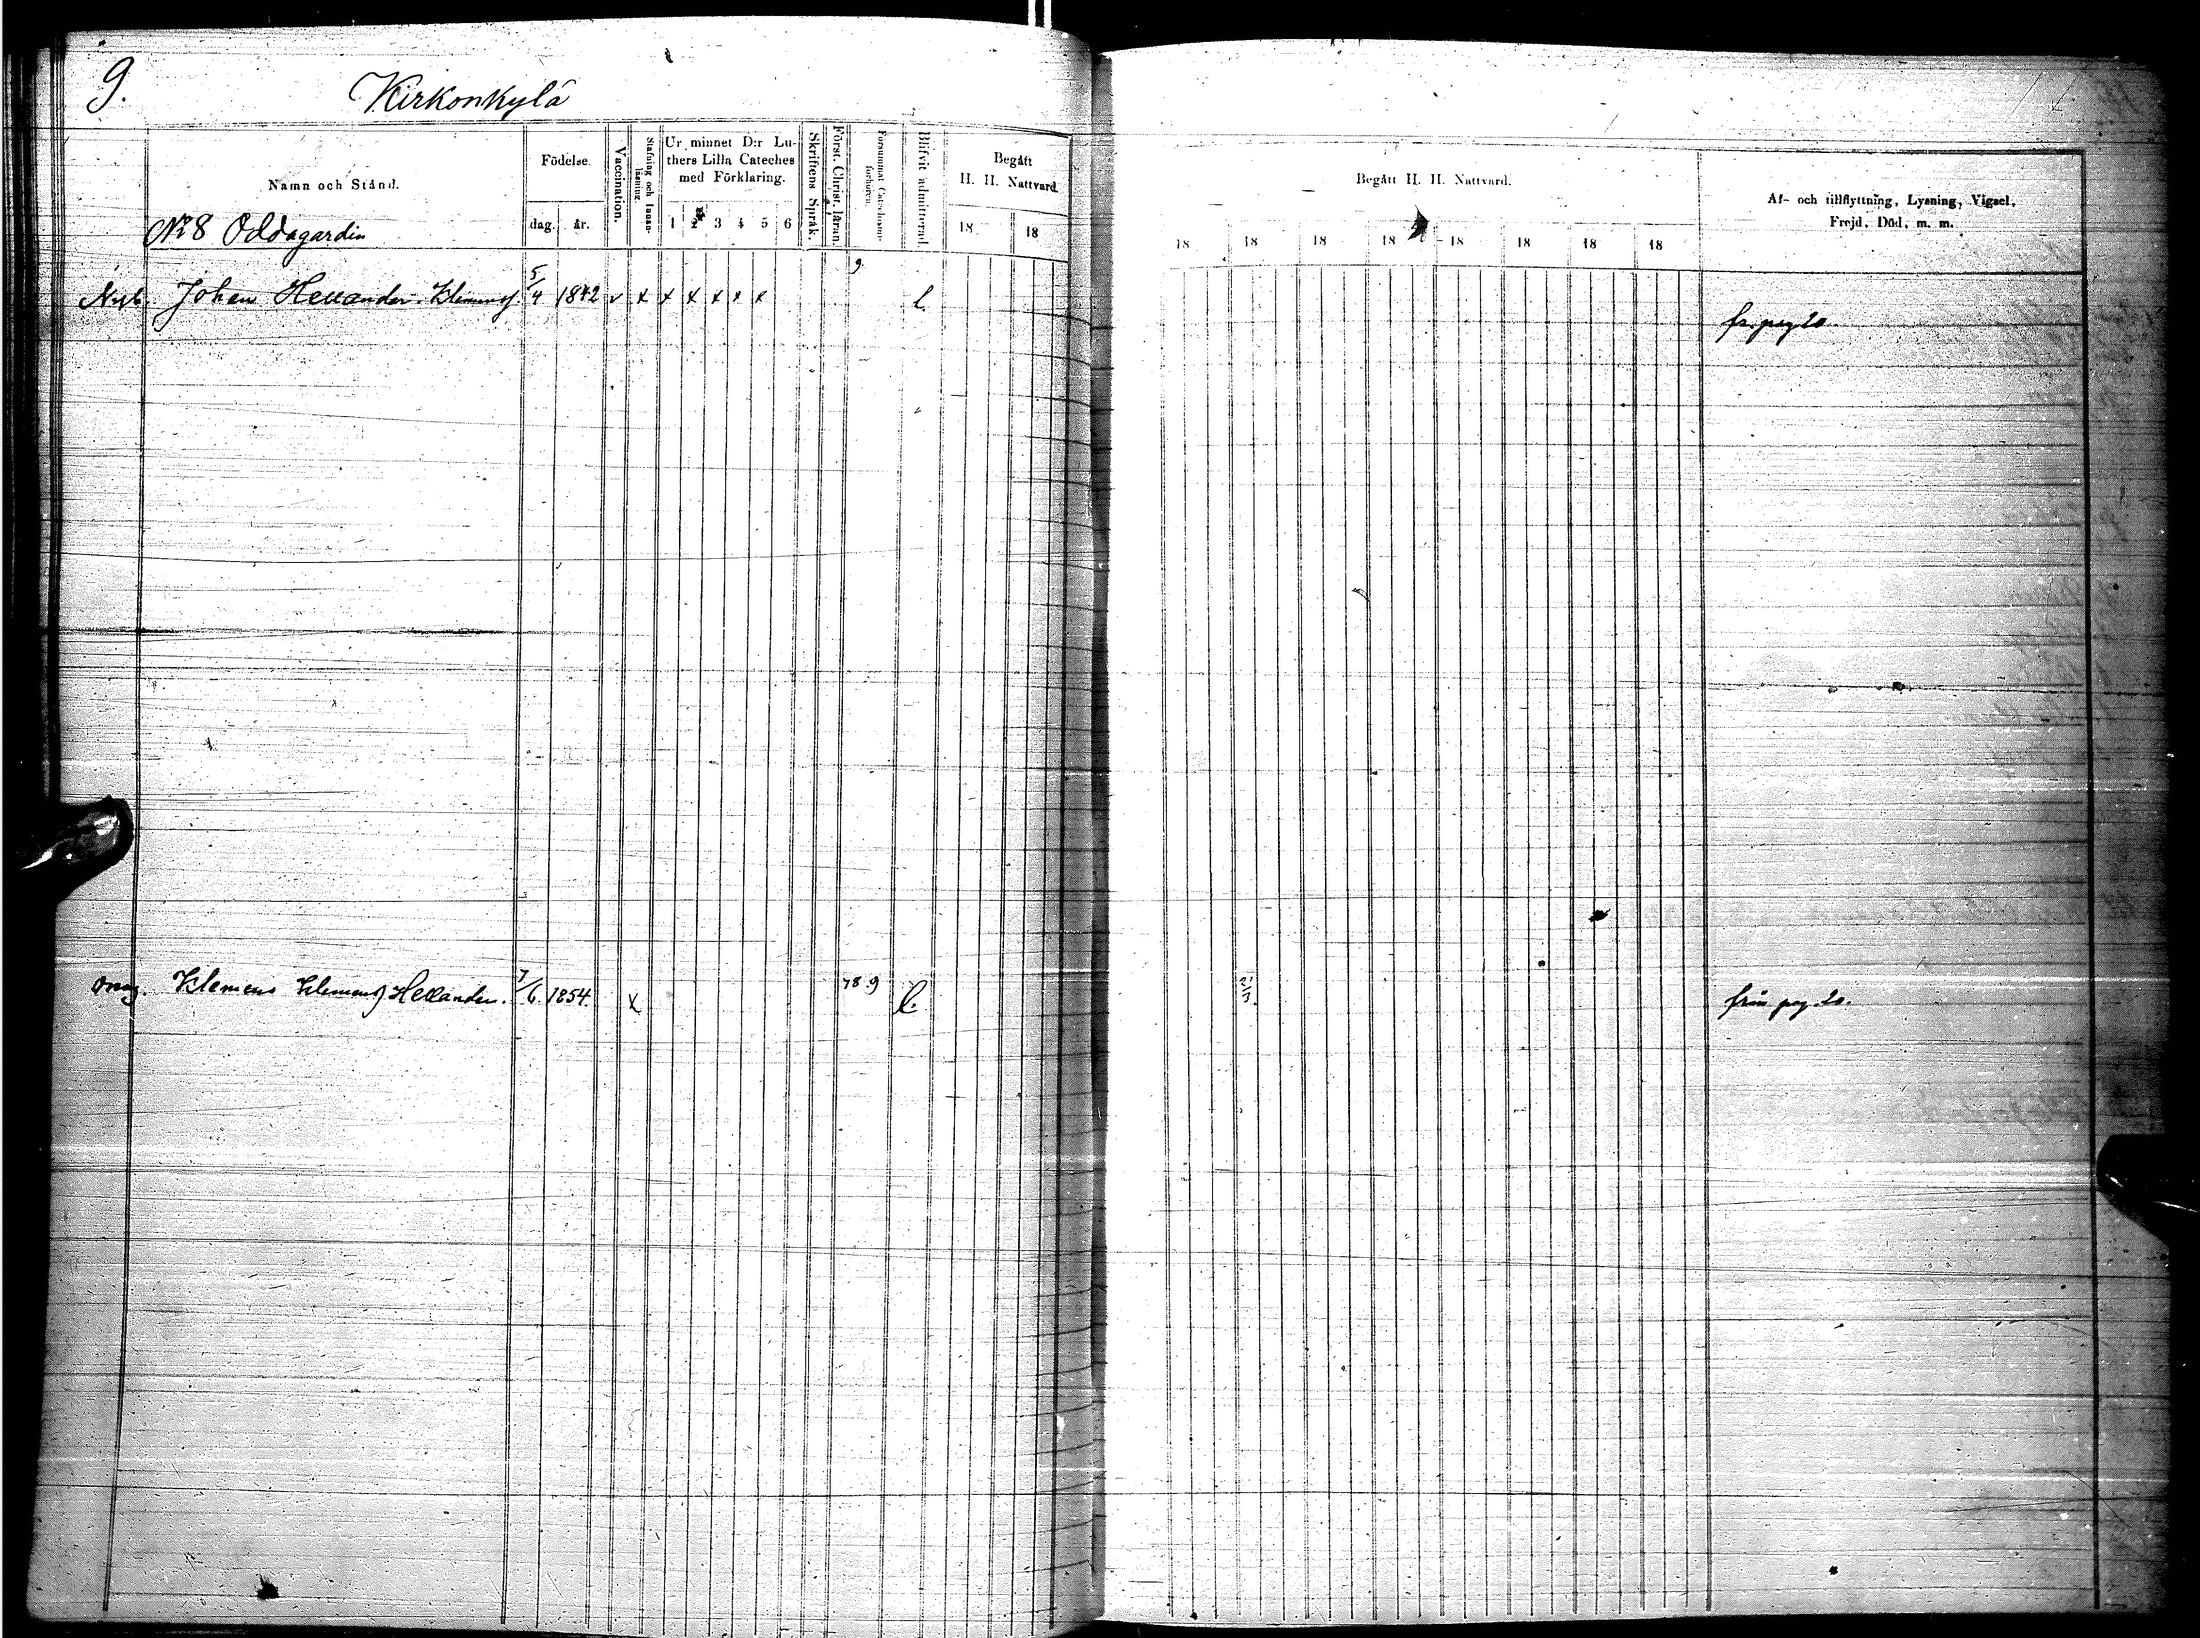 9.
Kirkonkylä
Namn och Stånd.
Födelse.
dag. år.
Vaccination.
Stafning och Innanläsning.
Ur minnet D:r Lu-
thers Lilla Cateches
med Förklaring.
1 2 3 4 5 6
Skriftens Språk.
Först. Christ. läran.
Försummat Catechismi-
förhören.
Blifvit admitterad
Begått
H. H. Nattvard.
18 18
Begått H. H. Nattvard.
18 18 18 18 18 18 18 18
Af- och tillflyttning, Lysning, Vigsel,
Frejd, Död, m. m.
No 8 Oddagardin
Johan Hellander Klemens. 5/4 1842 v x x x x x x 9 l.
fr. pag 20.
Klemens Klemens Hellander. 7/6 1854. x 78 9 l. 2/3.
från pag 20.